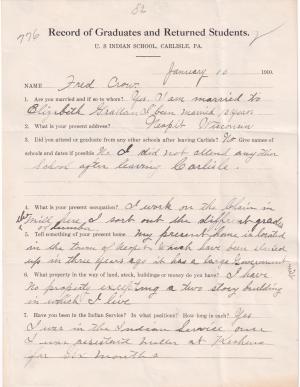 82
776
Record of Graduates and Returned Students.
U. S INDIAN SCHOOL, CARLISLE, PA.
January 10 1910.
NAME Fred Crow
1. Are you married and if so to whom? Yes I am married to
Elizabeth I been married years
2. What is your present address? Neopit Wisconsin
3. Did you attend or graduate from any other schools after leaving Carlisle? No Give names
of schools and dates if possible No I did not attend any other
School after leaving Carlisle.
4. What is your present occupation? I work on the chain in
Mill here, I sort out the different grades
of lumber.
5. Tell something of your present home my present home is located
in the town of Neopit which have been
up in three years ago it has a large Government
6. What property in the way of land, stock, buildings or money do you have? I have
no property excepting a two story building
in which I live
7. Have you been in the Indian Service? In what positions? How long in each? Yes
I was in the Indian Service once
I was assistant Miller at Keshena
for Six Months